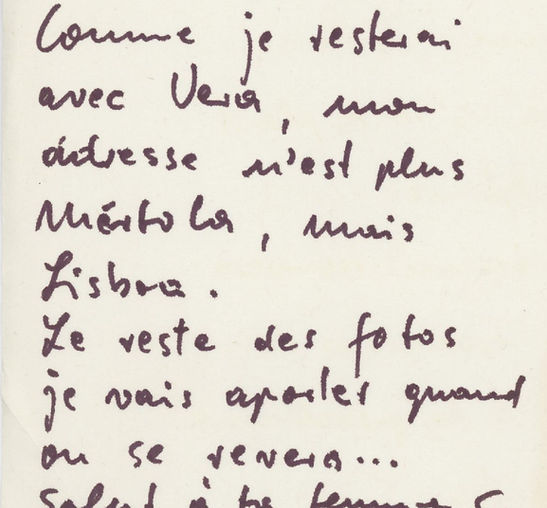 Comme je resterai
avec Vera, mon
ádresse n'est plus
Mértola, mais
Lisboa.
Le reste des fotos
je vais aporter quand
on se revera...
Salut à ta femme